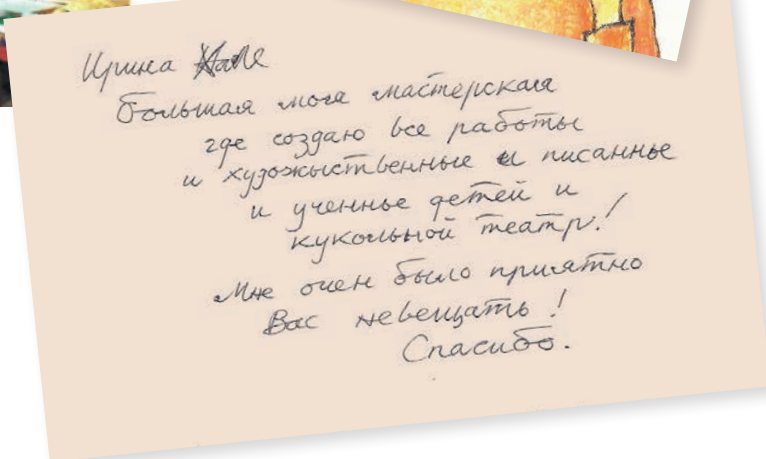 Ирина
большая моя мастерская
где создаю все работы
и художыственные и писанные
и ученные детей и
кукольной театр!
Мне очен было приятно
Вас невещать!
Спасибо.